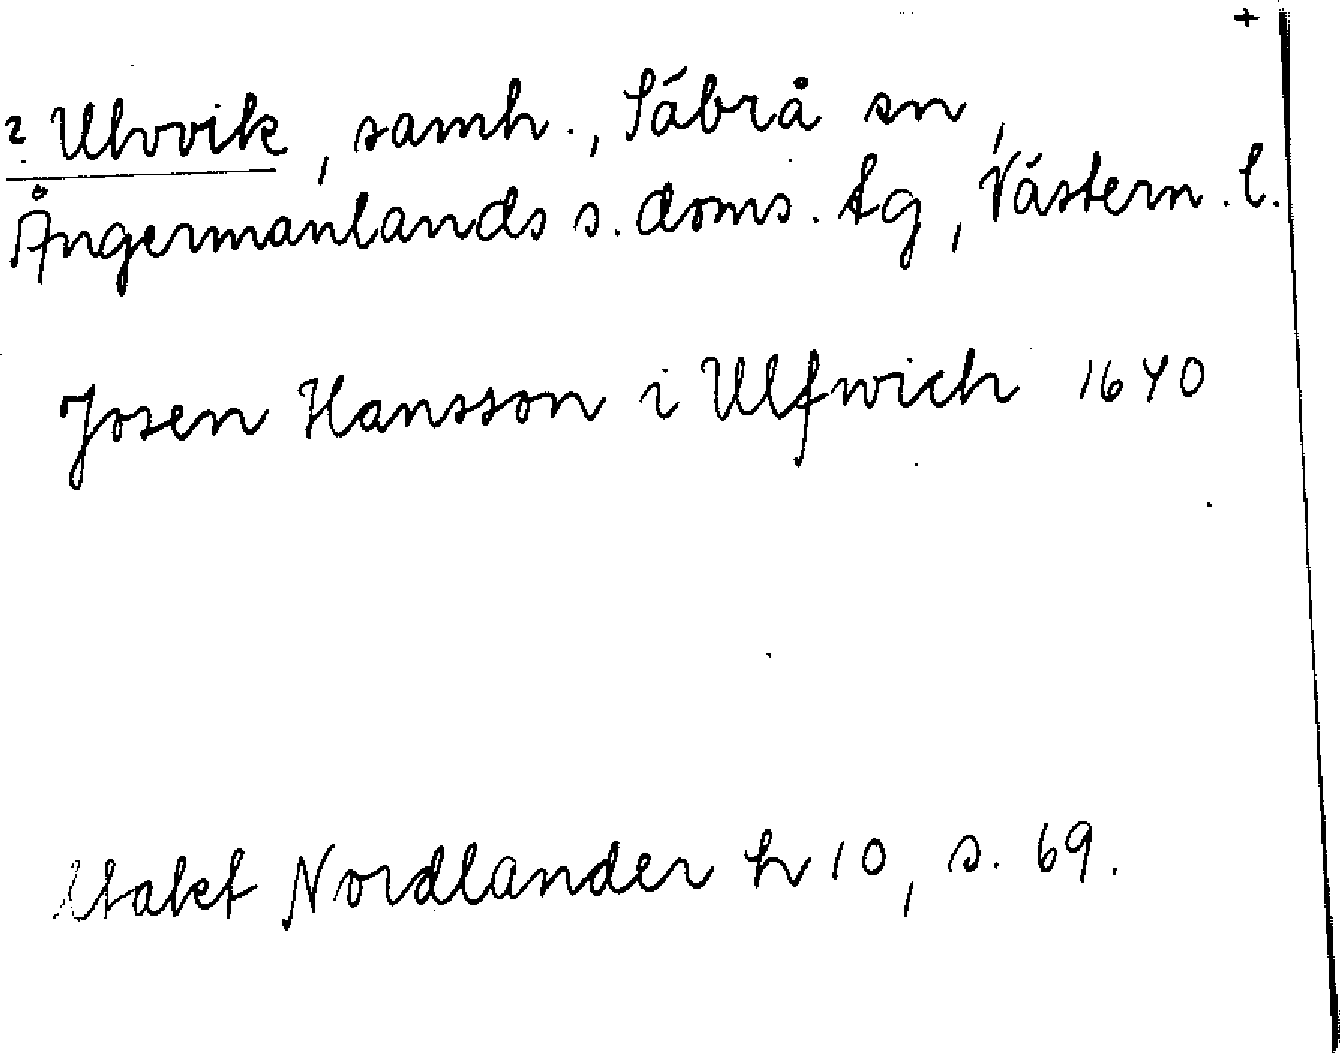 +
? Ulvvik, samh., Säbrå sn,
Ångermanlands s. doms. tg, Västern. l.
Josen Hansson i Ulfwich 1640
Utakt Nordlander h 10, s. 69.